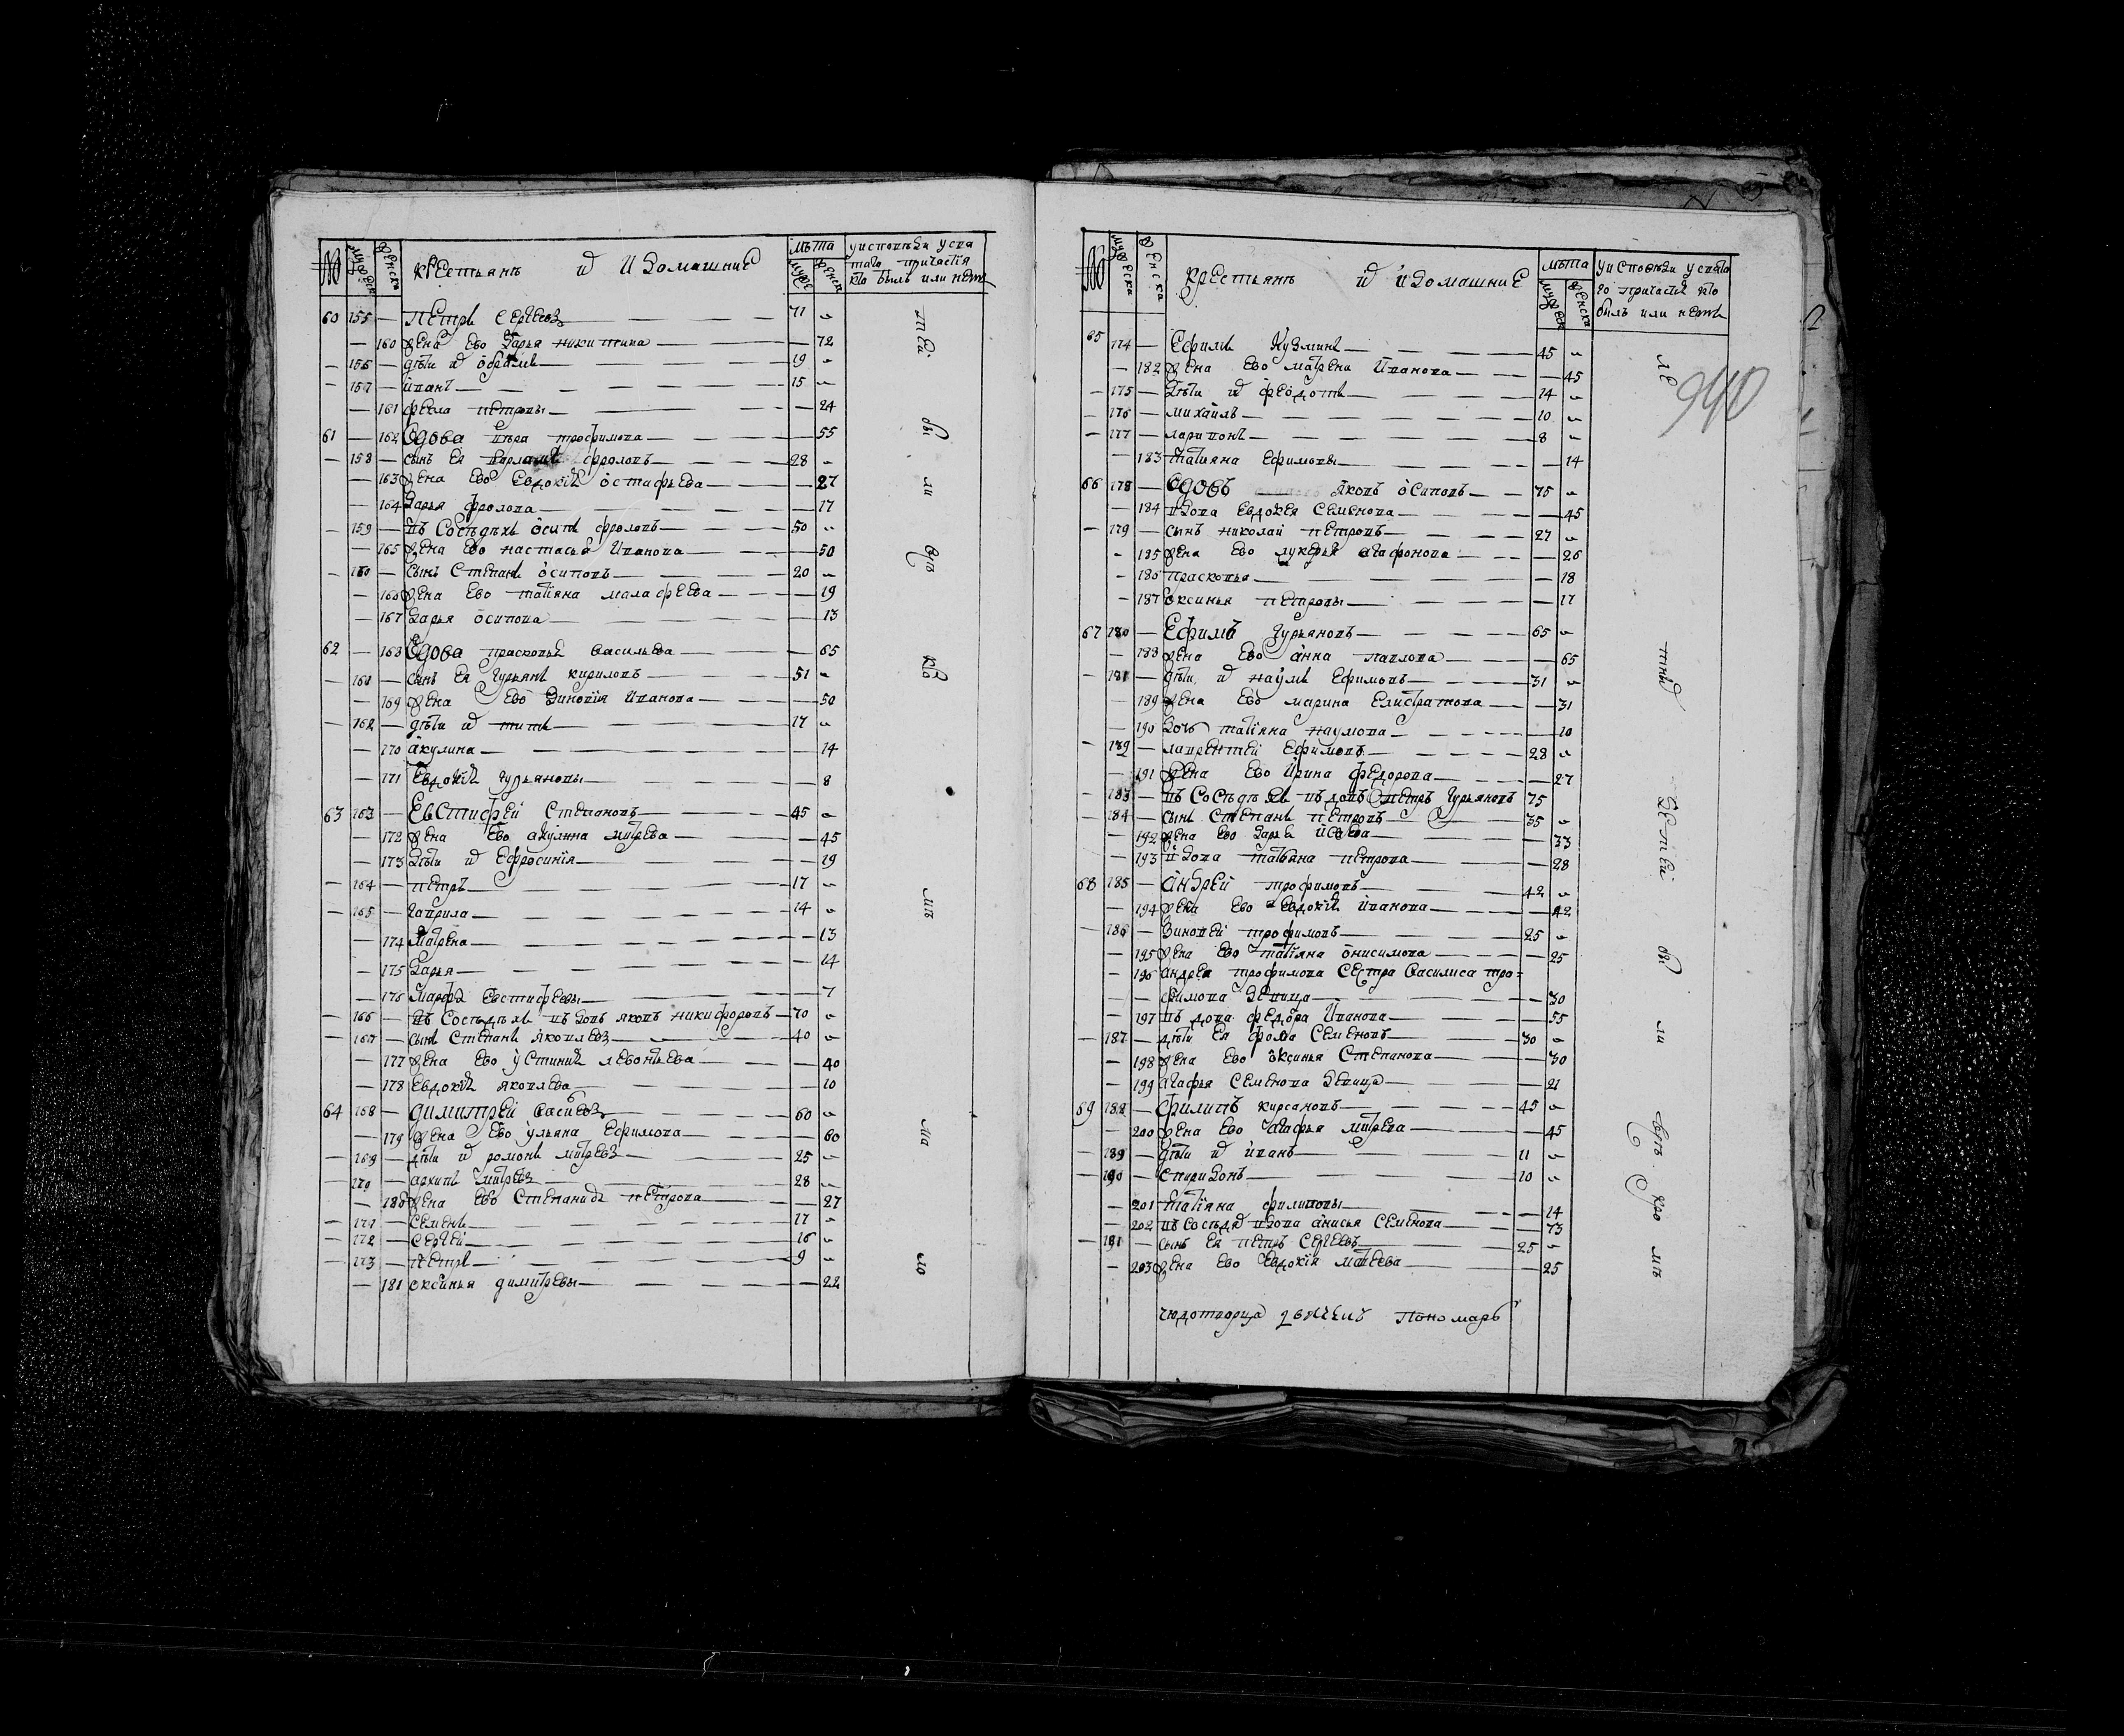 № мужеска женска крестьянъ и ихъ домашние
лѣта
муж женск
у исповѣди у свя
таго причастія
кто былъ или нетъ
60 155 — Петръ Сергеевъ 71 „
— 160 жена ево Дарья Никитина — 72
— 156 — дѣти их Абрамъ 19 „
— 157 — Иванъ 15 „
— 161 Фекла Петровы — 24
61 — 162 Вдова Вѣра Трофимова — 55
— 158 — сынъ ея Варламъ Фроловъ 28 „
— 163 жена ево Евдокия Остафьева — 27
— 164 Дарья Фролова — 17
— 159 — въ соседѣхъ Осипъ Фроловъ 50 „
— 165 жена ево Настасья Иванова — 50
— 160 — сынъ Степанъ Осиповъ 20 „
— 166 жена ево Татияна Малафеева — 19
— 167 Дарья Осипова — 13
62 — 168 Вдова Прасковья Васильева — 65
— 161 — сынъ ея Гурьянъ Кириловъ 51 „
— 169 жена ево Зиновия Иванова — 50
— 162 — дѣти их Титъ 17 „
— 170 Акулина — 14
— 171 Евдокия Гурьяновы — 8
63 163 — Евстифей Степановъ 45 „
— 172 жена ево Акулина Митрева — 45
— 173 дѣти их Ефросиния — 19
— 164 — Петръ 17 „
— 165 — Гаврила 14 „
— 174 Матрена — 13
— 175 Дарья — 14
— 176 Марфа Евстифеевы — 7
— 166 — въ соседѣхъ вдовъ Яковъ Никифоровъ 70 „
— 167 — сынъ Степанъ Яковлевъ 40 „
— 177 жена ево Устиния Леонтьева — 40
— 178 Евдокия Яковлева — 10
64 168 — Димитрей Васильевъ 60 „
— 179 жена ево Ульяна Ефимова — 60
— 169 — дѣти их Романъ Митревъ 25 „
— 170 — Архипъ Митревъ 28 „
— 180 жена ево Степанида Петрова — 27
— 171 — Семенъ 17 „
— 172 — Сергей 16 „
— 173 — Петръ 9 „
— 181 Оксинья Димитревы — 22
№ мужеска женска крестьянъ и ихъ домашние
лѣта
мужеск женска
у исповѣди у свята
го причастия кто
былъ или нетъ
940
65 174 — Ефимъ Кузминъ 45 „
— 182 жена ево Матрена Иванова — 45
— 175 — дѣти их Федотъ 14 „
— 176 — Михайлъ 10 „
— 177 — Ларивонъ 8 „
— 183 Татияна Ефимовы — 14
66 178 — Вдовъ Яковъ Осиповъ 75 „
— 184 вдова Евдокея Семенова — 45
— 179 — сынъ Николай Петровъ 27 „
— 185 жена ево Лукерья Агафонова — 26
— 186 Прасковья — 18
— 187 Оксинья Петровы — 17
67 180 — Ефимъ Гурьяновъ 65 „
— 188 жена ево Анна Павлова — 65
— 181 — дѣти их Наумъ Ефимовъ 31 „
— 189 жена ево Марина Елистратова — 31
— 190 дочь Татияна Наумова — 10
— 182 — Лаврентей Ефимовъ 28 „
— 191 жена ево Ирина Федорова — 27
— 183 — въ соседѣхъ вдовъ Петръ Гурьяновъ 75
— 184 — сынъ Степанъ Петровъ 35 „
— 192 жена ево Дарья — 33
— 193 вдова Татьяна Петрова — 28
68 185 — Андрей Трофимовъ 42 „
— 194 жена ево Евдокия Иванова — 42
— 186 — Зиновей Трофимовъ 25 „
— 195 жена ево Татияна Онисимова — 25
— 196 Андрея Трофимова сестра Василиса Тро=
— — фимова девица — 30
— 197 вдова Федора Иванова — 55
— 187 — дѣти ея Фома Семеновъ 30 „
— 198 жена ево Оксинья Степанова — 30
— 199 Агафья Семенова девица — 21
69 188 — Филипъ Кирсановъ 45 „
— 200 жена ево Агафья Митрева — 45
— 189 — дѣти их Иванъ 11 „
— 190 — Спиридонъ 10 „
— 201 Татияна Филиповы — 14
— 202 въ соседях вдова Анисья Семенова — 73
— 191 — сынъ ея Петръ Сергеевъ 25 „
— 203 жена ево Евдокия Матвеева — 25
чюдотворца пономарь